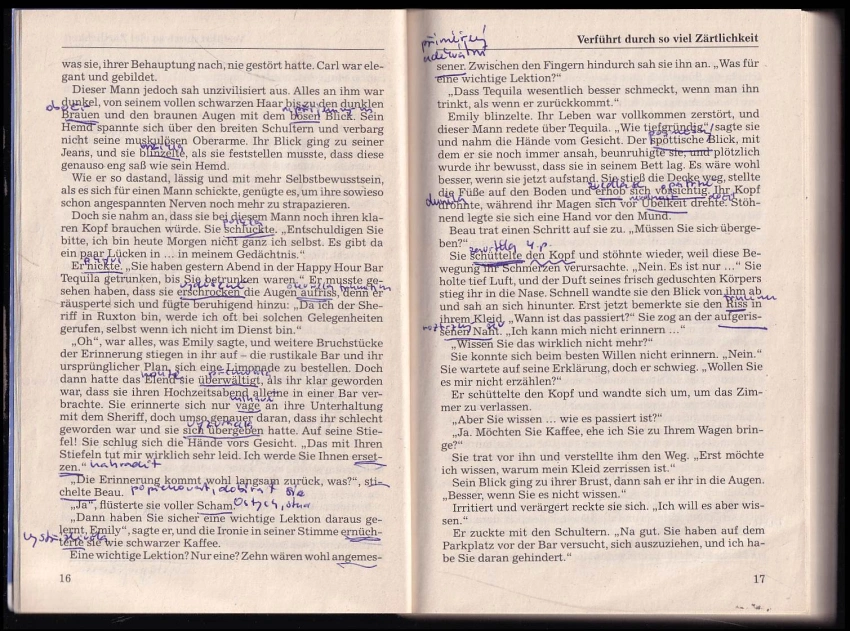 was sie, ihrer Behauptung nach, nie gestört hatte. Carl war ele-
gant und gebildet.
Dieser Mann jedoch sah unzivilisiert aus. Alles an ihm war
dunkel, von seinem vollen schwarzen Haar bis zu den dunklen
Brauen und den braunen Augen mit dem bösen Blick. Sein
Hemd spannte sich über den breiten Schultern und verbarg
nicht seine muskulösen Oberarme. Ihr Blick ging zu seiner
Jeans, und sie blinzelte, als sie feststellen musste, dass diese
genauso eng saß wie sein Hemd.
Wie er so dastand, lässig und mit mehr Selbstbewusstsein,
als es sich für einen Mann schickte, genügte es, um ihre sowieso
schon angespannten Nerven noch mehr zu strapazieren.
Doch sie nahm an, dass sie bei diesem Mann noch ihren kla-
ren Kopf brauchen würde. Sie schluckte. „Entschuldigen Sie
bitte, ich bin heute Morgen nicht ganz ich selbst. Es gibt da
ein paar Lücken in ... in meinem Gedächtnis.“
Er nickte. „Sie haben gestern Abend in der Happy Hour Bar
Tequila getrunken, bis Sie betrunken waren.“ Er musste ge-
sehen haben, dass sie erschrocken die Augen aufriss, denn er
räusperte sich und fügte beruhigend hinzu: „Da ich der She-
riff in Ruxton bin, werde ich oft bei solchen Gelegenheiten
gerufen, selbst wenn ich nicht im Dienst bin.“
„Oh“, war alles, was Emily sagte, und weitere Bruchstücke
der Erinnerung stiegen in ihr auf – die rustikale Bar und ihr
ursprünglicher Plan, sich eine Limonade zu bestellen. Doch
dann hatte das Elend sie überwältigt, als ihr klar geworden
war, dass sie ihren Hochzeitsabend alleine in einer Bar ver-
brachte. Sie erinnerte sich nur vage an ihre Unterhaltung
mit dem Sheriff, doch umso genauer daran, dass ihr schlecht
geworden war und sie sich übergeben hatte. Auf seine Stie-
fel! Sie schlug sich die Hände vors Gesicht. „Das mit Ihren
Stiefeln tut mir wirklich sehr leid. Ich werde Sie Ihnen erset-
zen.“ nahradit
„Die Erinnerung kommt wohl langsam zurück, was?“, sti-
chelte Beau.
„Ja“, flüsterte sie voller Scham.
„Dann haben Sie sicher eine wichtige Lektion daraus ge-
lernt, Emily“, sagte er, und die Ironie in seiner Stimme ernüch-
terte sie wie schwarzer Kaffee.
Eine wichtige Lektion? Nur eine? Zehn wären wohl angemes-
16
Verführt durch so viel Zärtlichkeit
sener. Zwischen den Fingern hindurch sah sie ihn an. „Was für
eine wichtige Lektion?“
„Dass Tequila wesentlich besser schmeckt, wenn man ihn
trinkt, als wenn er zurückkommt.“
Emily blinzelte. Ihr Leben war vollkommen zerstört, und
dieser Mann redete über Tequila. „Wie tiefgründig“, sagte sie
und nahm die Hände vom Gesicht. Der spöttische Blick, mit
dem er sie noch immer ansah, beunruhigte sie, und plötzlich
wurde ihr bewusst, dass sie in seinem Bett lag. Es wäre wohl
besser, wenn sie jetzt aufstand. Sie stieß die Decke weg, stellte
die Füße auf den Boden und erhob sich vorsichtig. Ihr Kopf
dröhnte, während ihr Magen sich vor Übelkeit drehte. Stöh-
nend legte sie sich eine Hand vor den Mund.
Beau trat einen Schritt auf sie zu. „Müssen Sie sich überge-
ben?“
Sie schüttelte den Kopf und stöhnte wieder, weil diese Be-
wegung ihr Schmerzen verursachte. „Nein. Es ist nur ...“ Sie
holte tief Luft, und der Duft seines frisch geduschten Körpers
stieg ihr in die Nase. Schnell wandte sie den Blick von ihm ab
und sah an sich hinunter. Erst jetzt bemerkte sie den Riss in
ihrem Kleid. „Wann ist das passiert?“ Sie zog an der aufgeris-
senen Naht. „Ich kann mich nicht erinnern ...“
„Wissen Sie das wirklich nicht mehr?“
Sie konnte sich beim besten Willen nicht erinnern. „Nein.“
Sie wartete auf seine Erklärung, doch er schwieg. „Wollen Sie
es mir nicht erzählen?“
Er schüttelte den Kopf und wandte sich um, um das Zim-
mer zu verlassen.
„Aber Sie wissen ... wie es passiert ist?“
„Ja. Möchten Sie Kaffee, ehe ich Sie zu Ihrem Wagen brin-
ge?“
Sie trat vor ihn und verstellte ihm den Weg. „Erst möchte
ich wissen, warum mein Kleid zerrissen ist.“
Sein Blick ging zu ihrer Brust, dann sah er ihr in die Augen.
„Besser, wenn Sie es nicht wissen.“
Irritiert und verärgert reckte sie sich. „Ich will es aber wis-
sen.“
Er zuckte mit den Schultern. „Na gut. Sie haben auf dem
Parkplatz vor der Bar versucht, sich auszuziehen, und ich ha-
be Sie daran gehindert.“
17